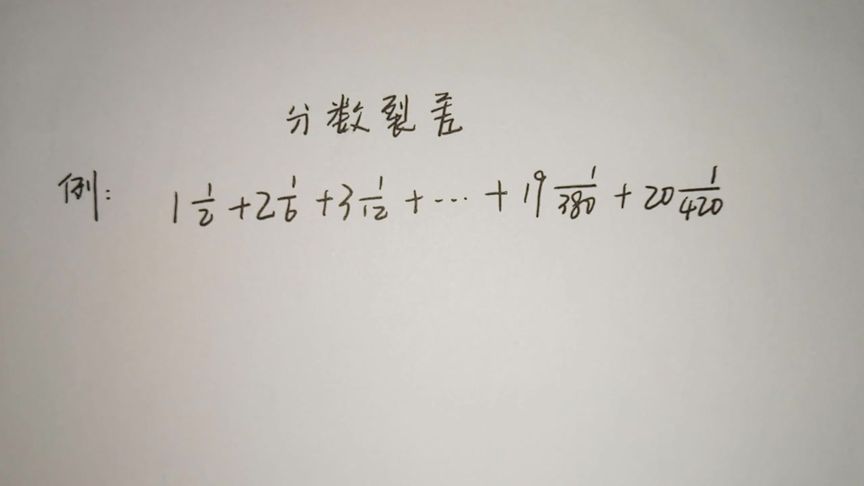 分数裂差
例: 1 1/2 + 2 1/6 + 3 1/12 + ··· + 19 1/380 + 20 1/420